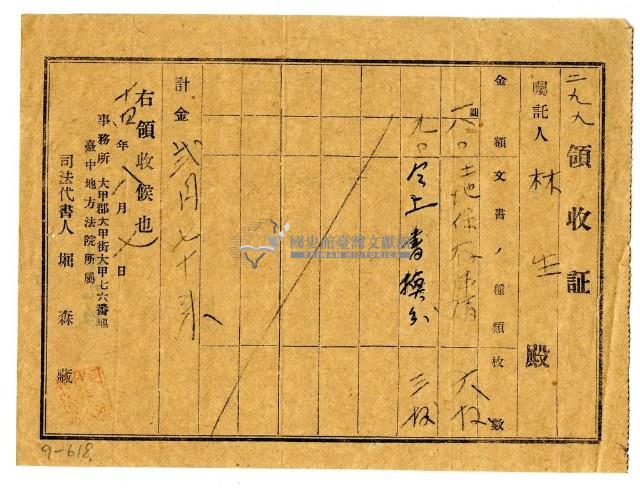 二九九 領收証
囑託人 林 生 殿
金額 文書ノ種類 枚數
圓
一八〇 土地保存申請 六枚
九〇 仝上書損分 三枚
計金 貳円七十錢
右領收候也
十四年八月七日
事務所 大甲郡大甲街大甲七六番地
臺中地方法院所屬
司法代書人 堀 森藏
國史館臺灣文獻館
TAIWAN HISTORICA
9-618